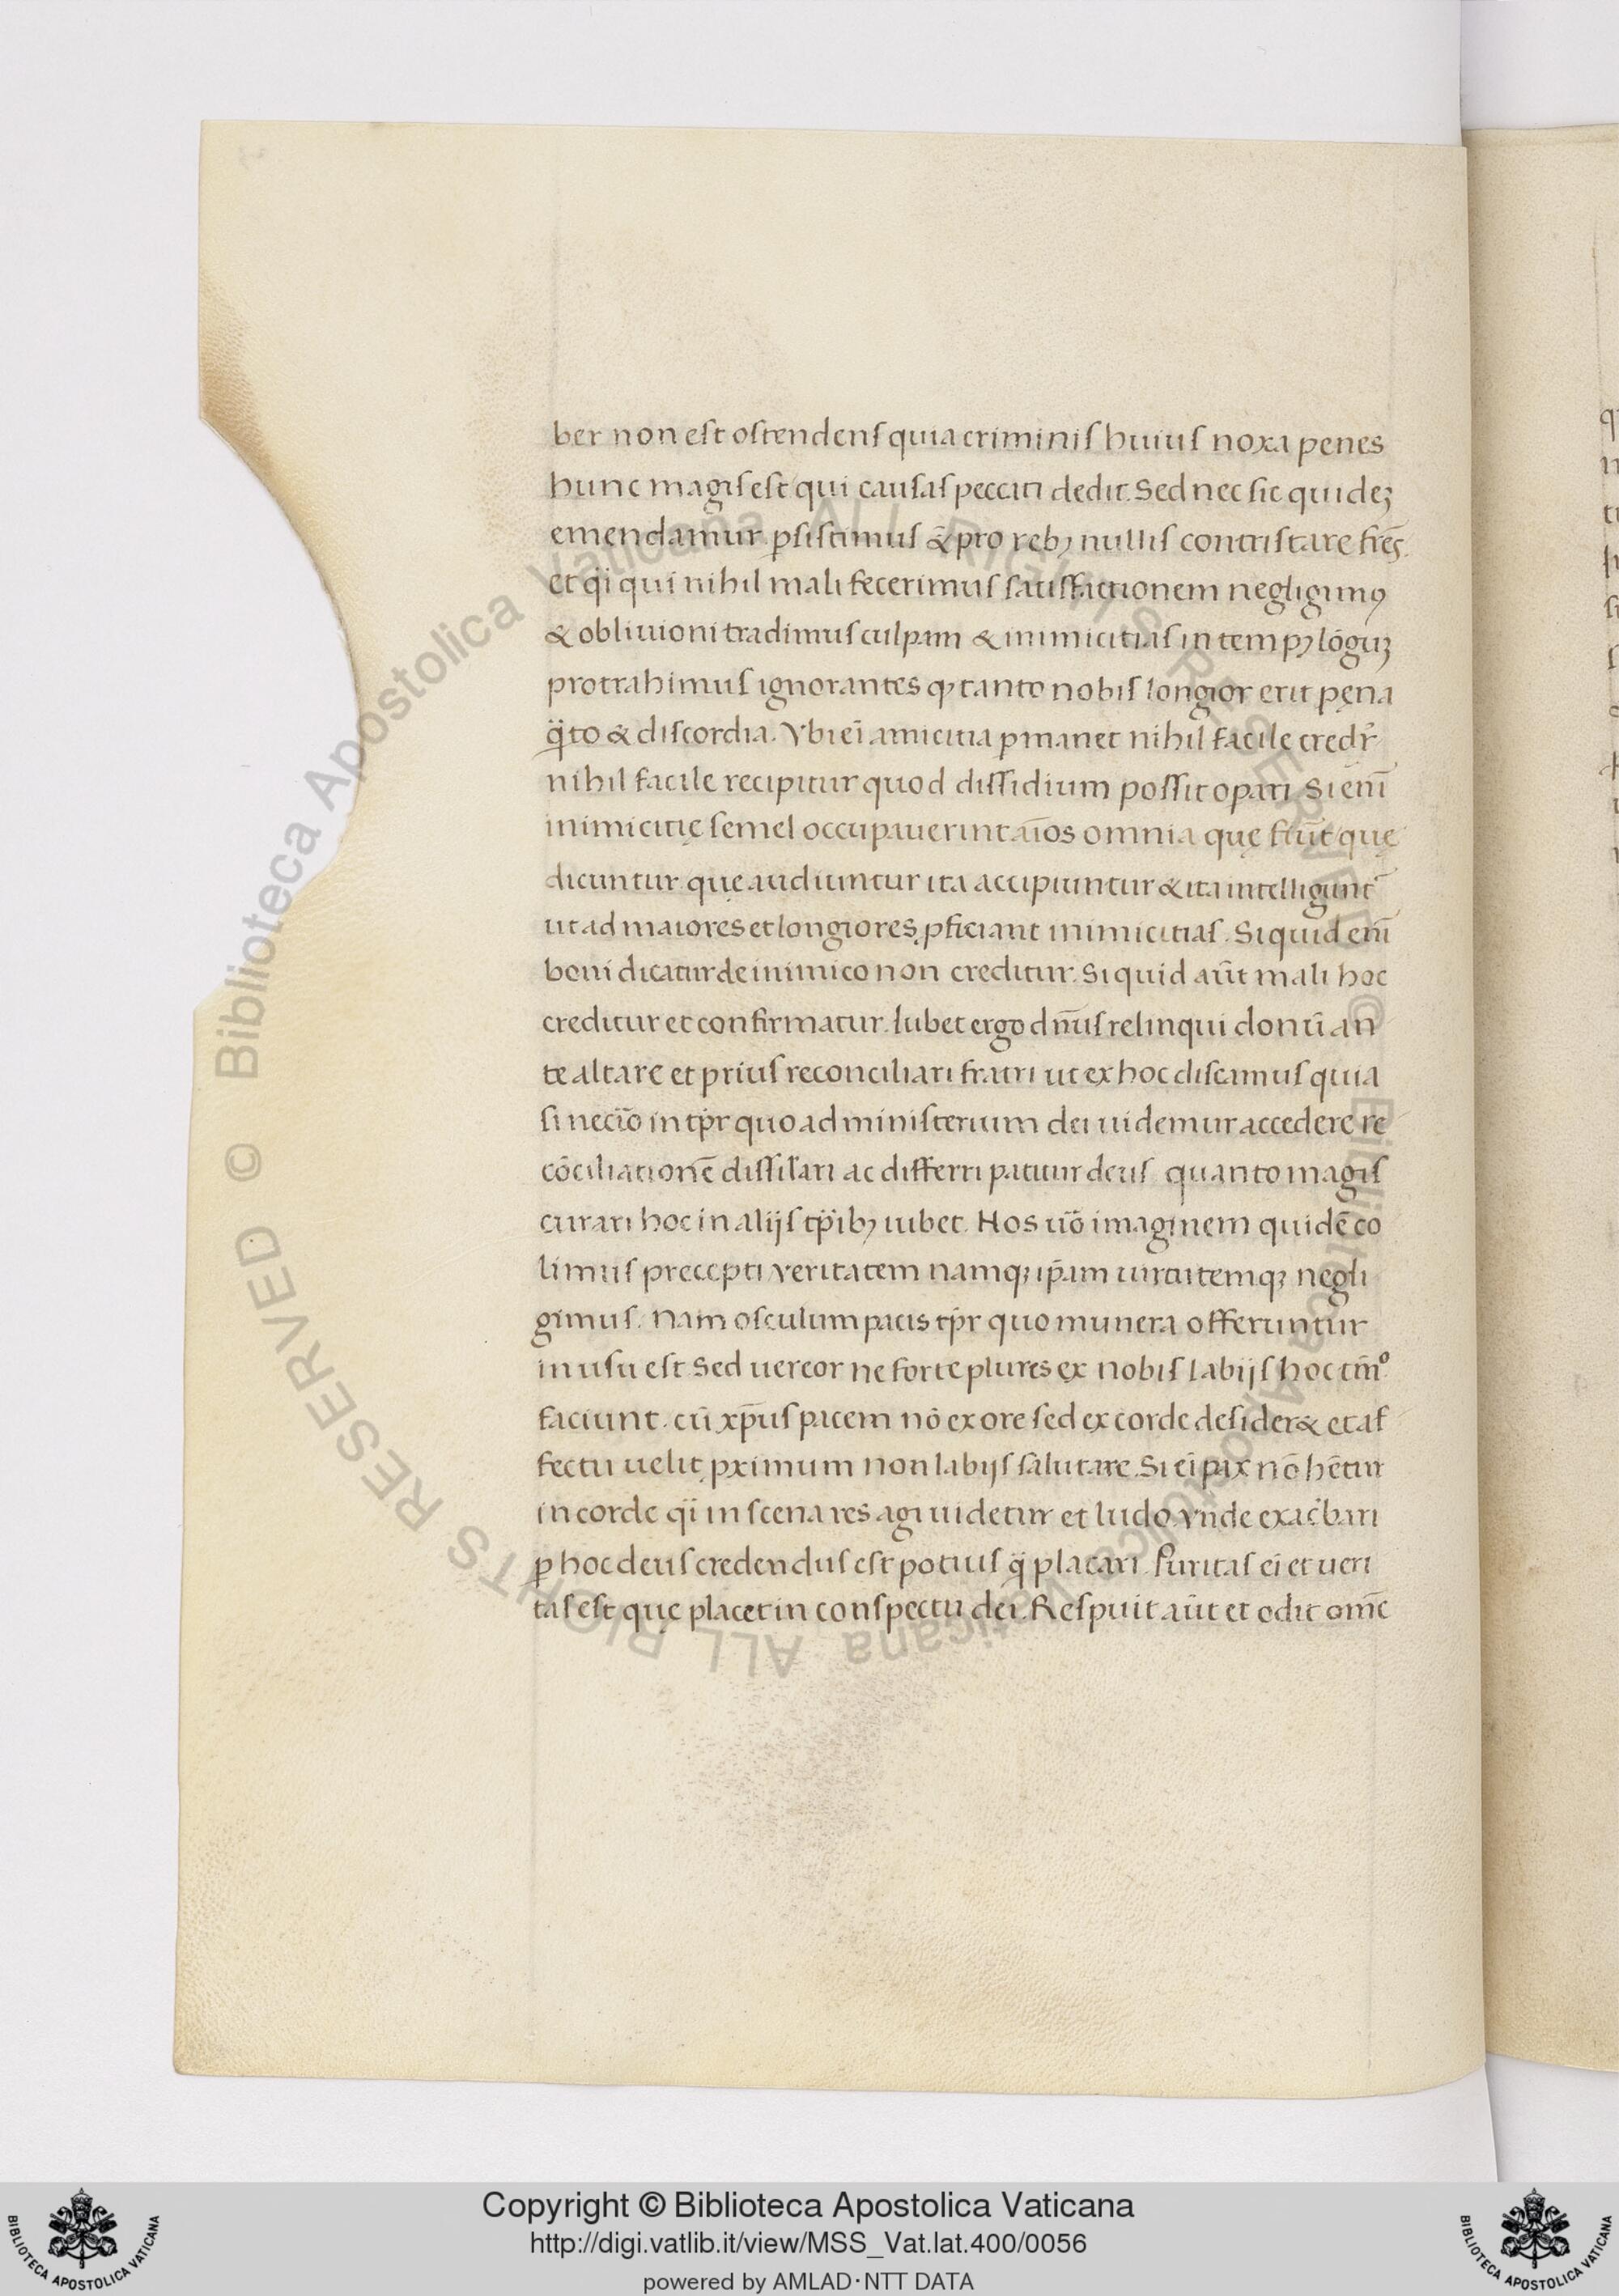 ber non est ostendens quia criminis huius noxa penes
hunc magis est qui causas peccati dedit. Sed nec sic quideꝫ
emendamur ꝑsistimus & pro rebꝫ nullis contristare fr̄es.
et qͣi qui nihil mali fecerimus satisfactionem negligimꝰ
& obliuioni tradimus culpam & inimicitias in temp⁹ lōguꝫ
protrahimus ignorantes qꝫ tanto nobis longior erit pęna
qͣto & discordia. Vbi ei̅ amicitia ꝑmanet nihil facile credr̄
nihil facile recipitur quod dissidium possit opari Si eni̅
inimicitię semel occupauerint aīos omnia quę fiūt quę
dicuntur quę audiuntur ita accipiuntur & ita intelligunt̄
ut ad maiores et longiores ꝓficiant inimicitias. Si quid eni̅
boni dicatur de inimico non creditur. Si quid aūt mali hoc
creditur et confirmatur. Iubet ergo dn̄us relinqui donū an
te altare et prius reconciliari fratri ut ex hoc discamus quia
si nec io̅ in tp̄r quo ad ministerium dei uidemur accedere re
cōciliationē dissil'ari ac differri patitur deus quanto magis
curari hoc in alijs tp̄ibꝫ iubet. Nos uo̅ imaginem quidē co
limus precepti veritatem namqꝫ ip̄am uirtutemqꝫ negli
gimus. Nam osculum pacis tp̄r quo munera offeruntur
in usu est Sed uereor ne forte plures ex nobis labijs hoc tm̄º
faciunt. cū xp̄us pacem nō ex ore sed ex corde desider& et af
fectu uelit ꝓximum non labijs salutare. Si ei̅ pax nō hētur
in corde qͣi in scena res agi uidetur et ludo vnde exac̄bari
ꝑ hoc deus credendus est potius qͣ placari. Puritas ei̅ et ueri
tas est quę placet in conspectu dei. Respuit aūt et odit om̄e
Copyright © Biblioteca Apostolica Vaticana
http://digi.vatlib.it/view/MSS_Vat.lat.400/0056
powered by AMLAD·NTT DATA
BIBLIOTECA APOSTOLICA VATICANA
BIBLIOTECA APOSTOLICA VATICANA
© Biblioteca Apostolica Vaticana ALL RIGHTS RESERVED © Biblioteca Apostolica Vaticana ALL RIGHTS RESERVED